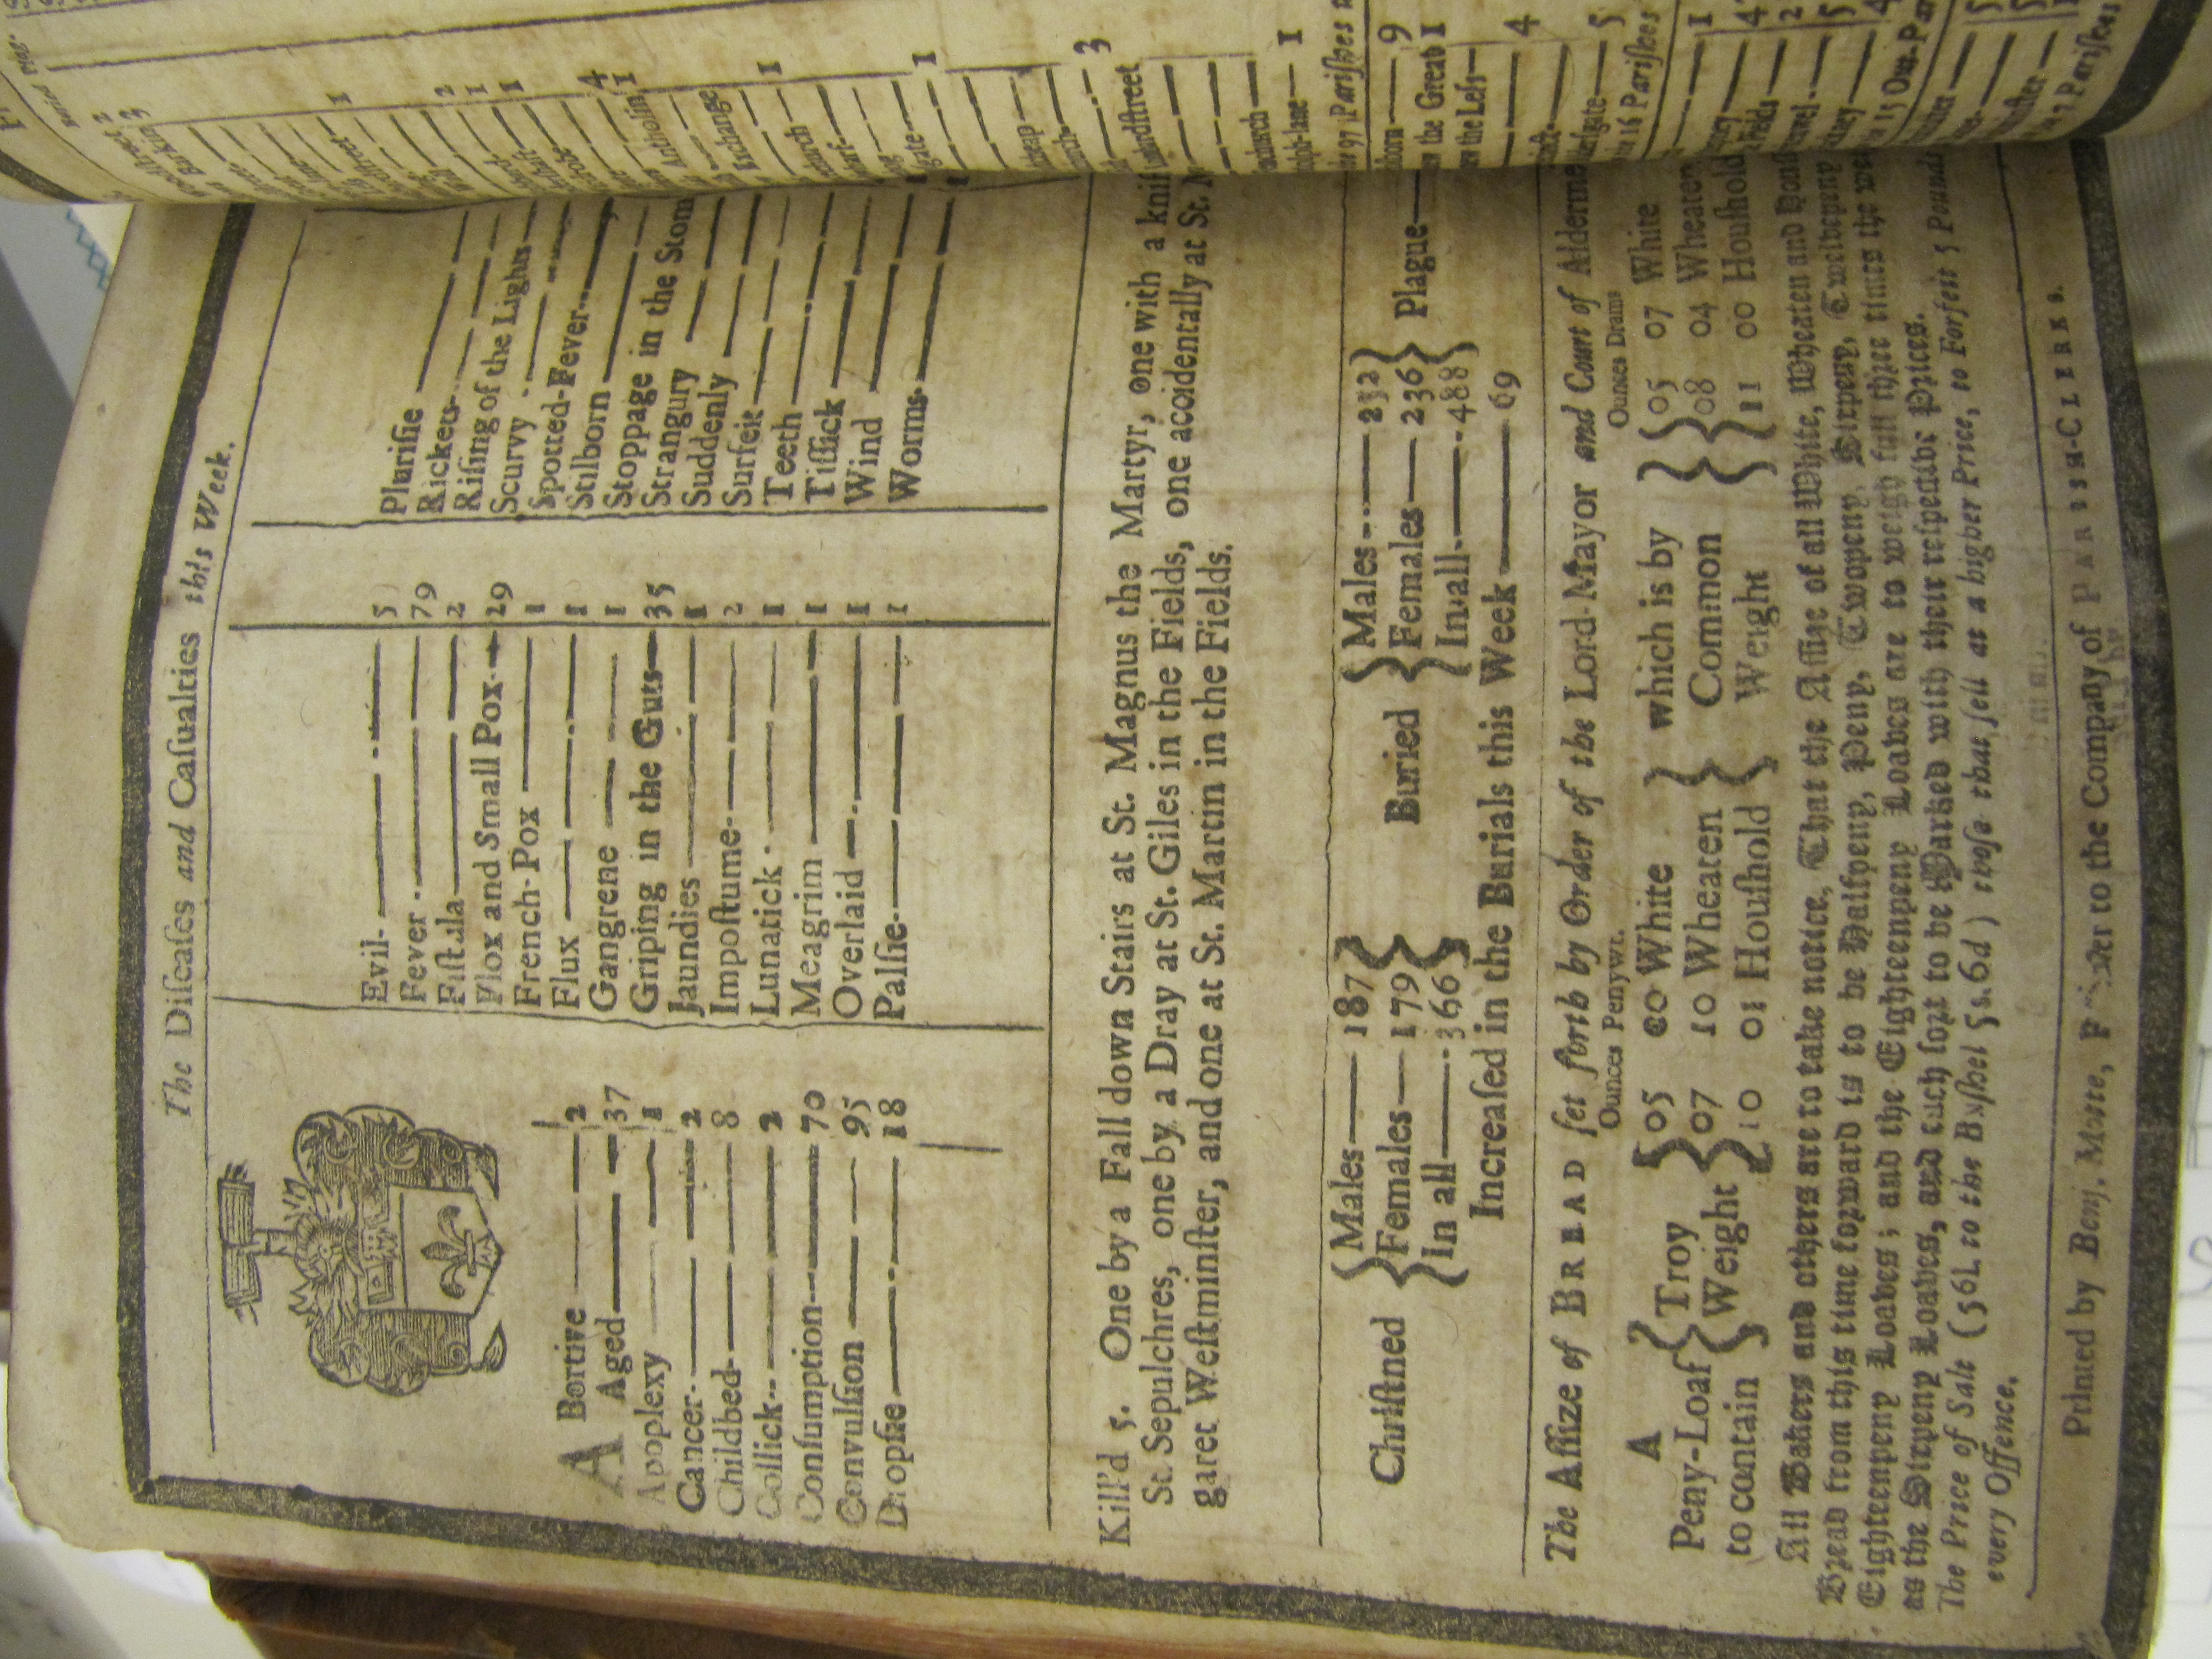 The Diſeaſes and Caſualties this Week.
A Bortive 2
Aged 37
Apoplexy 1
Cancer 2
Childbed 8
Collick 2
Conſumption 70
Convulſion 95
Dropſie 18
Evil 5
Fever 79
Fiſtula 2
Flox and Small Pox 29
French-Pox 1
Flux 1
Gangrene 1
Griping in the Guts 35
Jaundies 1
Impoſtume 2
Lunatick 1
Meagrim 1
Overlaid 1
Palſie 1
Pluriſie
Rickets
Riſing of the Lights
Scurvy
Spotted-Fever
Stilborn
Stoppage in the Stom
Strangury
Suddenly
Surfeit
Teeth
Tiſſick
Wind
Worms
Kill'd 5. One by a Fall down Stairs at St. Magnus the Martyr, one with a knif
St. Sepulchres, one by a Dray at St. Giles in the Fields, one accidentally at St. M
garet Weſtminſter, and one at St. Martin in the Fields.
Chriſtned { Males 187 Females 179 In all 366 }
Buried { Males 252 Females 236 In all 488 } Plague
Increaſed in the Burials this Week 69
The Aſſize of BREAD ſet forth by Order of the Lord-Mayor and Court of Alderme
Ounces Penywt. Ounces Drams
A { Troy } 05 00 White } which is by { 05 07 White
Peny-Loaf { Weight } 07 10 Wheaten } Common { 08 04 Wheaten
to contain 10 01 Houſhold } Weight { 11 00 Houſhold
All Bakers and others are to take notice, That the Aſſize of all White, Wheaten and Houſ
Bread from this time forward is to be Halfpeny, Peny, Twopeny, Sixpeny, Twelvepeny
Eighteenpeny Loaves; and the Eighteenpeny Loaves are to weigh full three times the we
as the Sixpeny Loaves, and each ſort to be Marked with their reſpective Prices.
The Price of Salt (56L to the Buſhel 5s.6d) thoſe that ſell at a higher Price, to Forfeit 5 Pound
every Offence.
Printed by Benj. Motte, Printer to the Company of PARISH-CLERKS.
1
2
1
1
4
1
Antholin
Exchange
1
1
3
1
97 Pariſhes
9
the Great 1
the Leſs
4
5
16 Pariſhes
1
4
2
5
4
7 Pariſhes